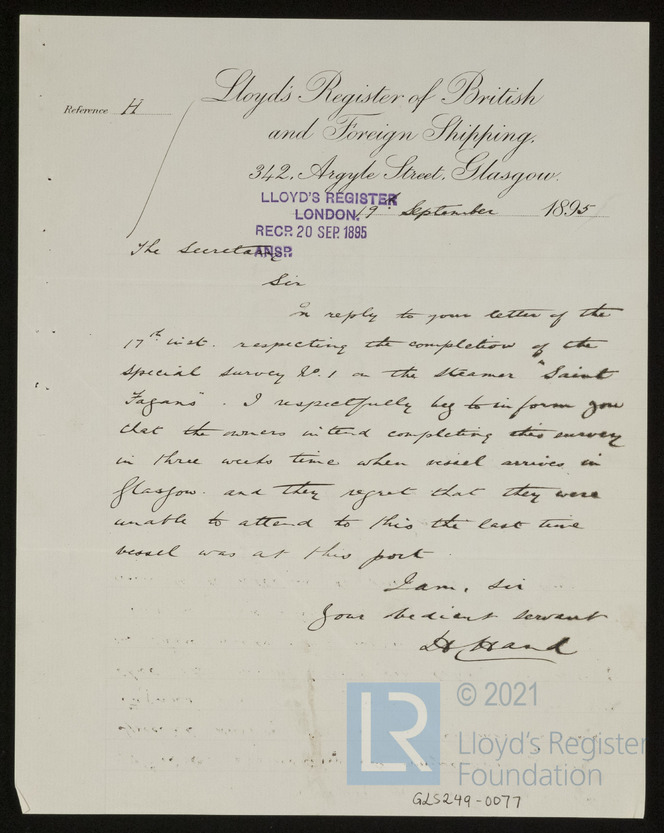 Lloyd's Register of British
and Foreign Shipping.
342, Argyle Street, Glasgow.
Reference H
LLOYD'S REGISTER
LONDON.
RECP. 20 SEP. 1895
ANSP.
19th September 1895
The Secretary
Sir
In reply to your letter of the
17th inst. respecting the completion of the
special survey No. 1 on the steamer "Saint
Fagans". I respectfully beg to inform you
that the owners intend completing this survey
in three weeks time when vessel arrives in
Glasgow. and they regret that they were
unable to attend to this the last time
vessel was at this port.
I am, Sir
Your obedient servant
Hand
LR
© 2021
Lloyd's Register
Foundation
GLS249-0077